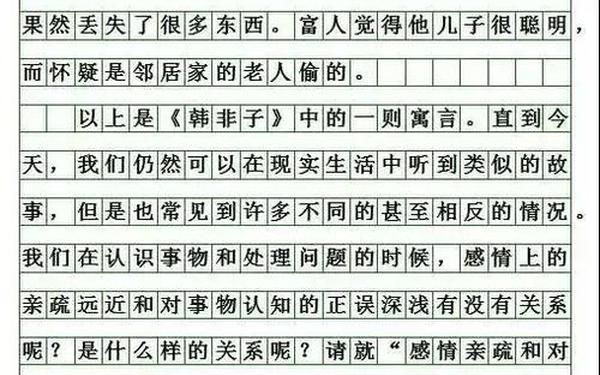 果然丢失了很多东西。富人觉得他儿子很聪明，
而怀疑是邻居家的老人偷的。
以上是《韩非子》中的一则寓言。直到今
天，我们仍然可以在现实生活中听到类似的故
事，但是也常见到许多不同的甚至相反的情况。
我们在认识事物和处理问题的时候，感情上的
亲疏远近和对事物认知的正误深浅有没有关系
呢？是什么样的关系呢？请就“感情亲疏和对